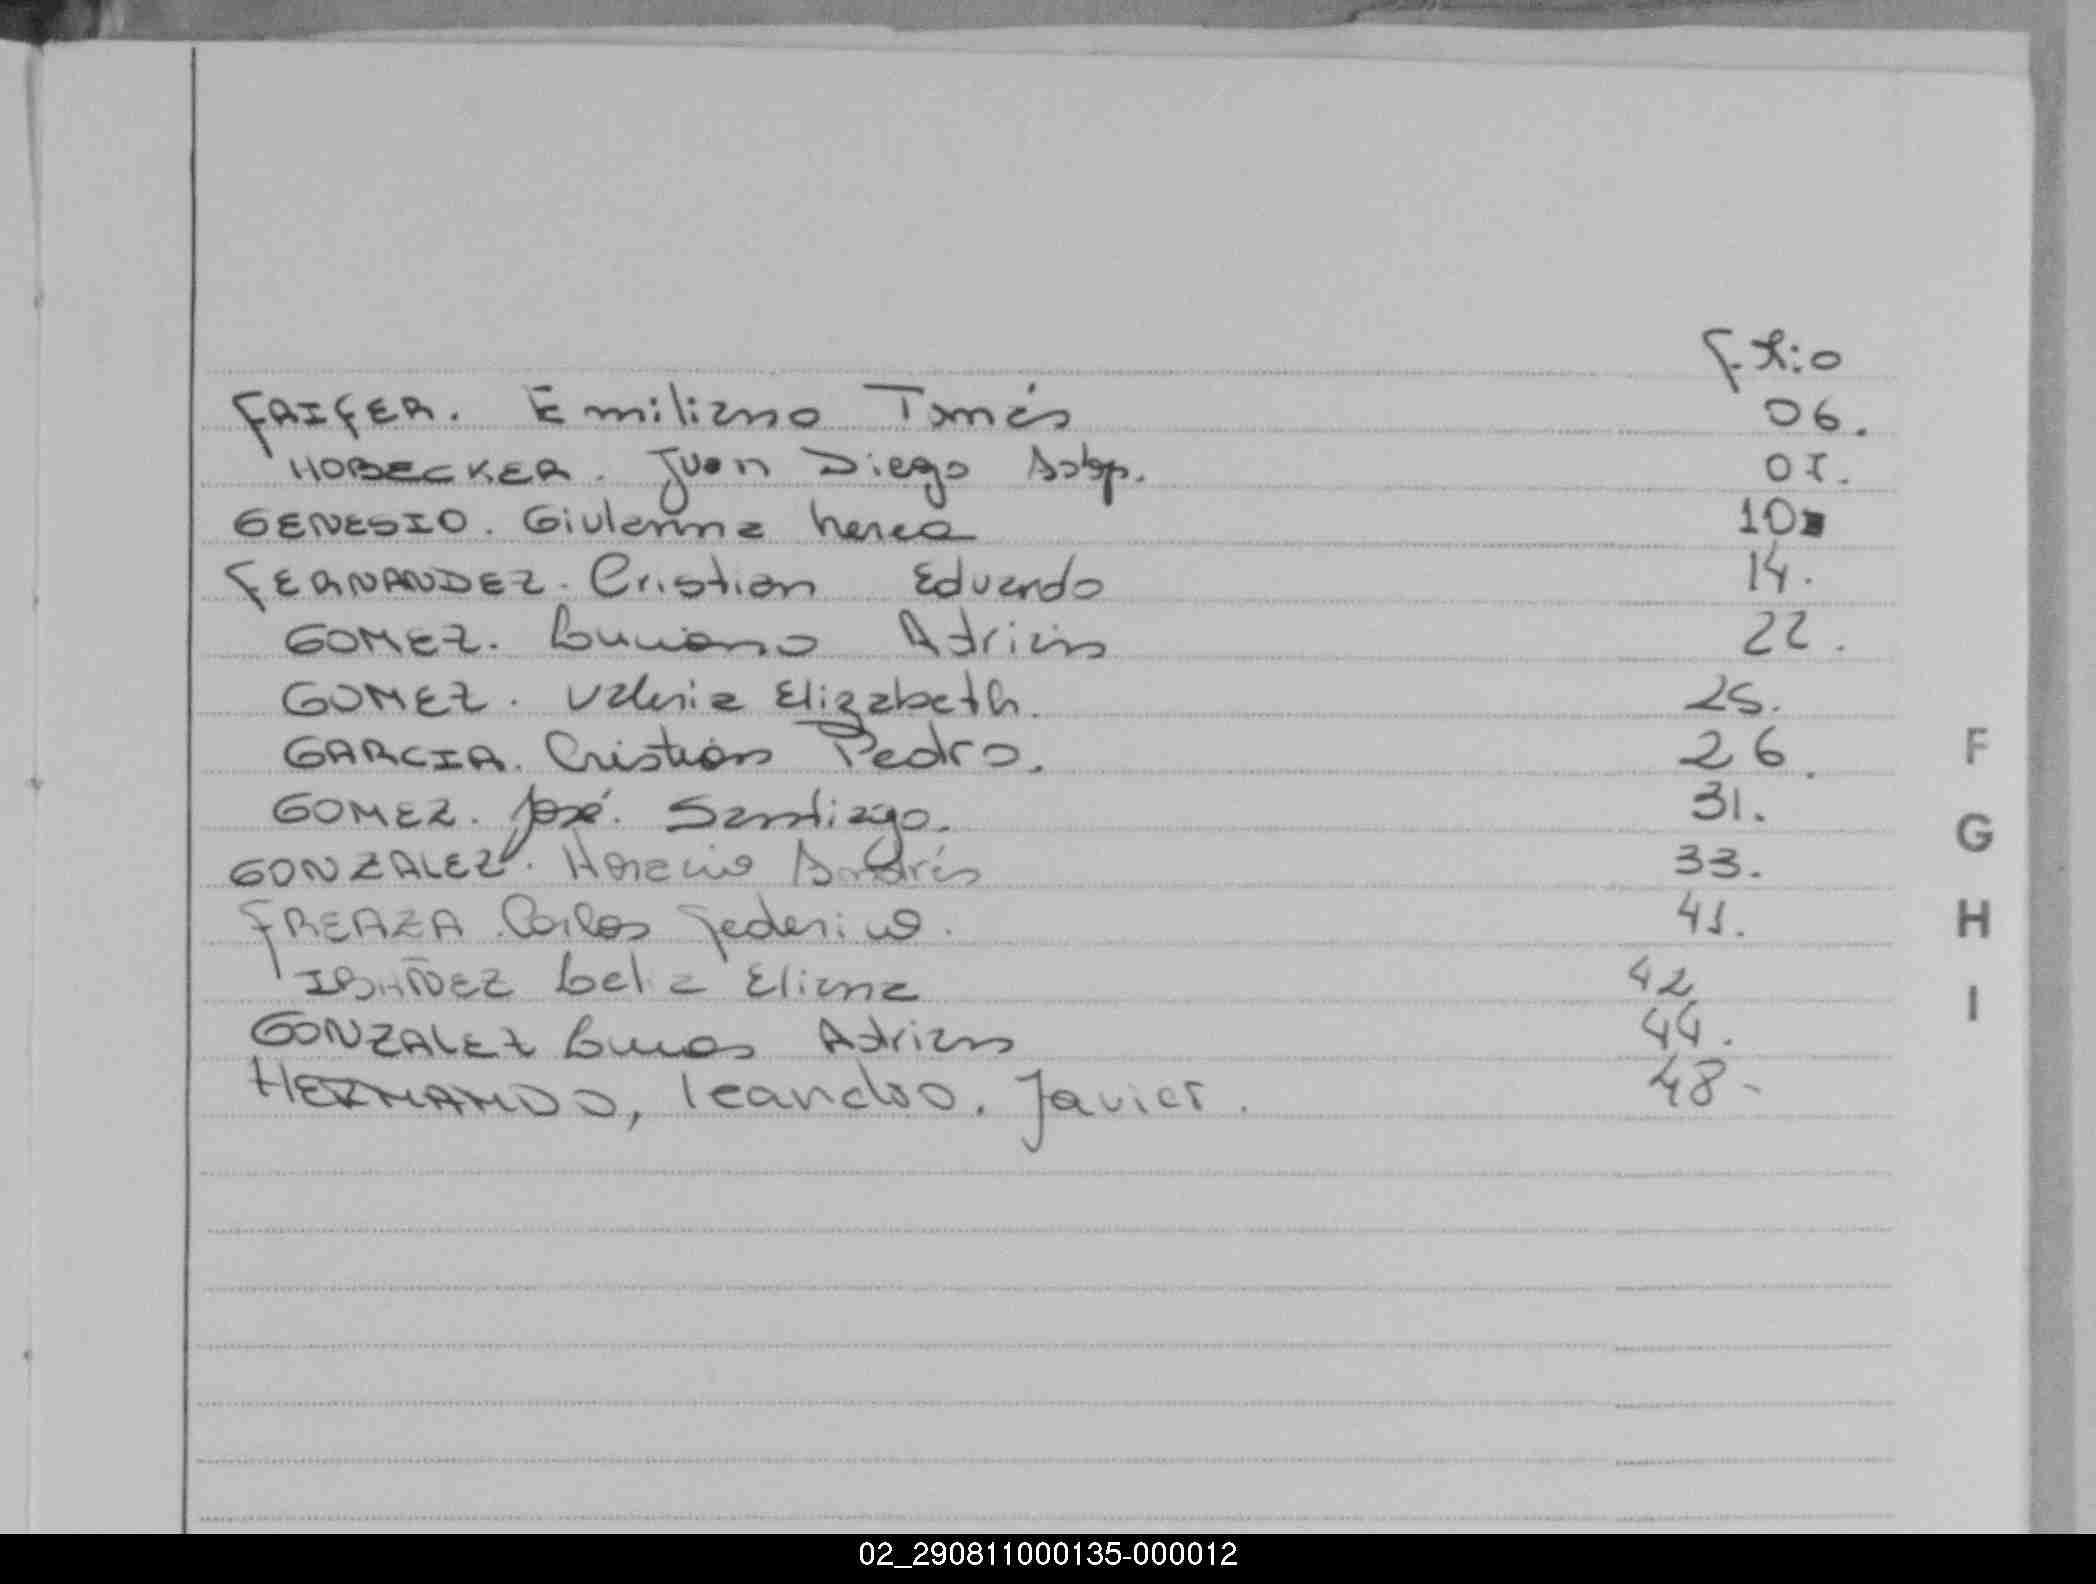 Folio
FRIFER. Emiliano Tomás 06.
HOBECKER. Juan Diego Adop. 07.
GENESIO. Giulanna Nerea 10
FERNANDEZ. Cristian Eduardo 14.
GOMEZ. Luciano Adrián 22.
GOMEZ. Valeria Elizabeth. 25.
GARCIA. Cristian Pedro. 26.
GOMEZ. José. Santiago. 31.
GONZALEZ. Horacio Andrés 33.
FREAZA Carlos Federico. 41.
IBAÑEZ Eliana 42
GONZALEZ Lucas Adrian 44.
HERNANDO, leandro. Javier. 48-
F
G
H
I
02_290811000135-000012